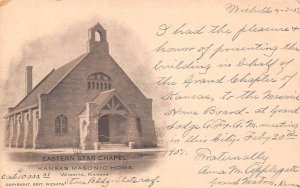 Wichita 4-2-07
I had the pleasure &
honor of presenting the
building in behalf of
the Grand Chapter of
Kansas to the Masonic
Home Board - at Grand
Lodge A.F.& A.M. meeting
in this City Feby 20th
'07. Fraternally
Anna M. Applegate
Grand Matron, Kansas
EASTERN STAR CHAPEL
KANSAS MASONIC HOME
WICHITA, KANSAS
Cost 10,000.00
COPYRIGHT, GRIT, WICHITA
Fire Bldg